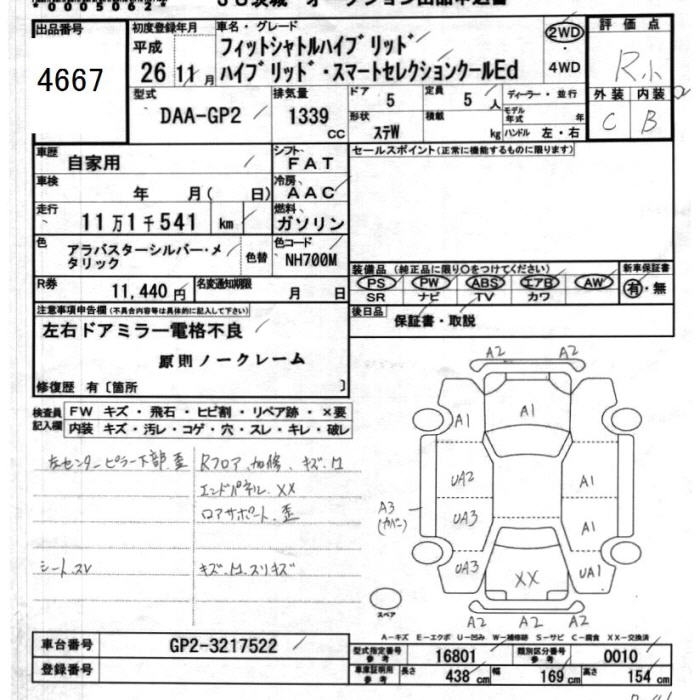 出品番号 4667
初度登録年月 平成 26 11月
車名・グレード
フィットシャトルハイブリッド
ハイブリッド・スマートセレクションクールEd
2WD ・ 4WD
評価点 R小
外装 内装
C B
型式 DAA-GP2
排気量 1339 CC
ドア 5 定員 5 人
形状 ステW 積載 kg
ディーラー・並行
モデル年式 年
ハンドル 左・右
車歴 自家用
シフト FAT
車検 年 月( 日)
冷房 AAC
走行 11万1千541 km
燃料 ガソリン
色 アラバスターシルバー・メタリック
色替
色コード NH700M
R券 11,440円
名変通知期限 月 日
セールスポイント(正常に機能するものに限ります)
装備品 (純正品に限り○をつけてください)
PS PW ABS エアB AW
SR ナビ TV カワ
新車保証書 有・無
後日品 保証書・取説
注意事項申告欄(不具合内容等は具体的に記入して下さい)
左右ドアミラー電格不良
原則ノークレーム
修復歴 有〔箇所 〕
検査員記入欄
FW キズ・飛石・ヒビ割・リペア跡・×要
内装 キズ・汚レ・コゲ・穴・スレ・キレ・破レ
左センターピラー下部 歪
Rフロア、加修、キズ、M
エンドパネル XX
ロアサポート 歪
シートSV
キズ、M、スリキズ
A2 A2
A1 A1
UA2 A1
A3 (カバー)
UA3 A1
UA3 XX UA1
A2 A2
A2
スペア
A-キズ E-エクボ U-凹み W-補修跡 S-サビ C-腐食 XX-交換済
車台番号 GP2-3217522
登録番号
型式指定番号 参考 16801
類別区分番号 参考 0010
車庫証明用 参考 長さ 438 cm 幅 169 cm 高さ 154 cm